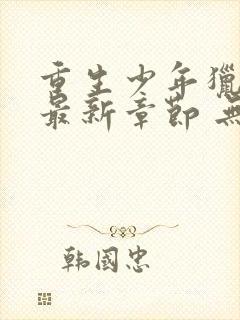 重生少年獵
最新章節 無
韩國忠